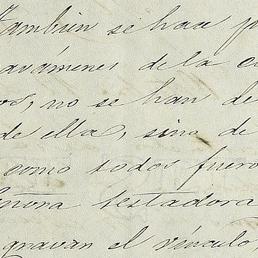 También se hace p
avámenes de la c
os, no se han de
de ella, sino de
como todos fuero
eñora testadora
gravan el vínculo,